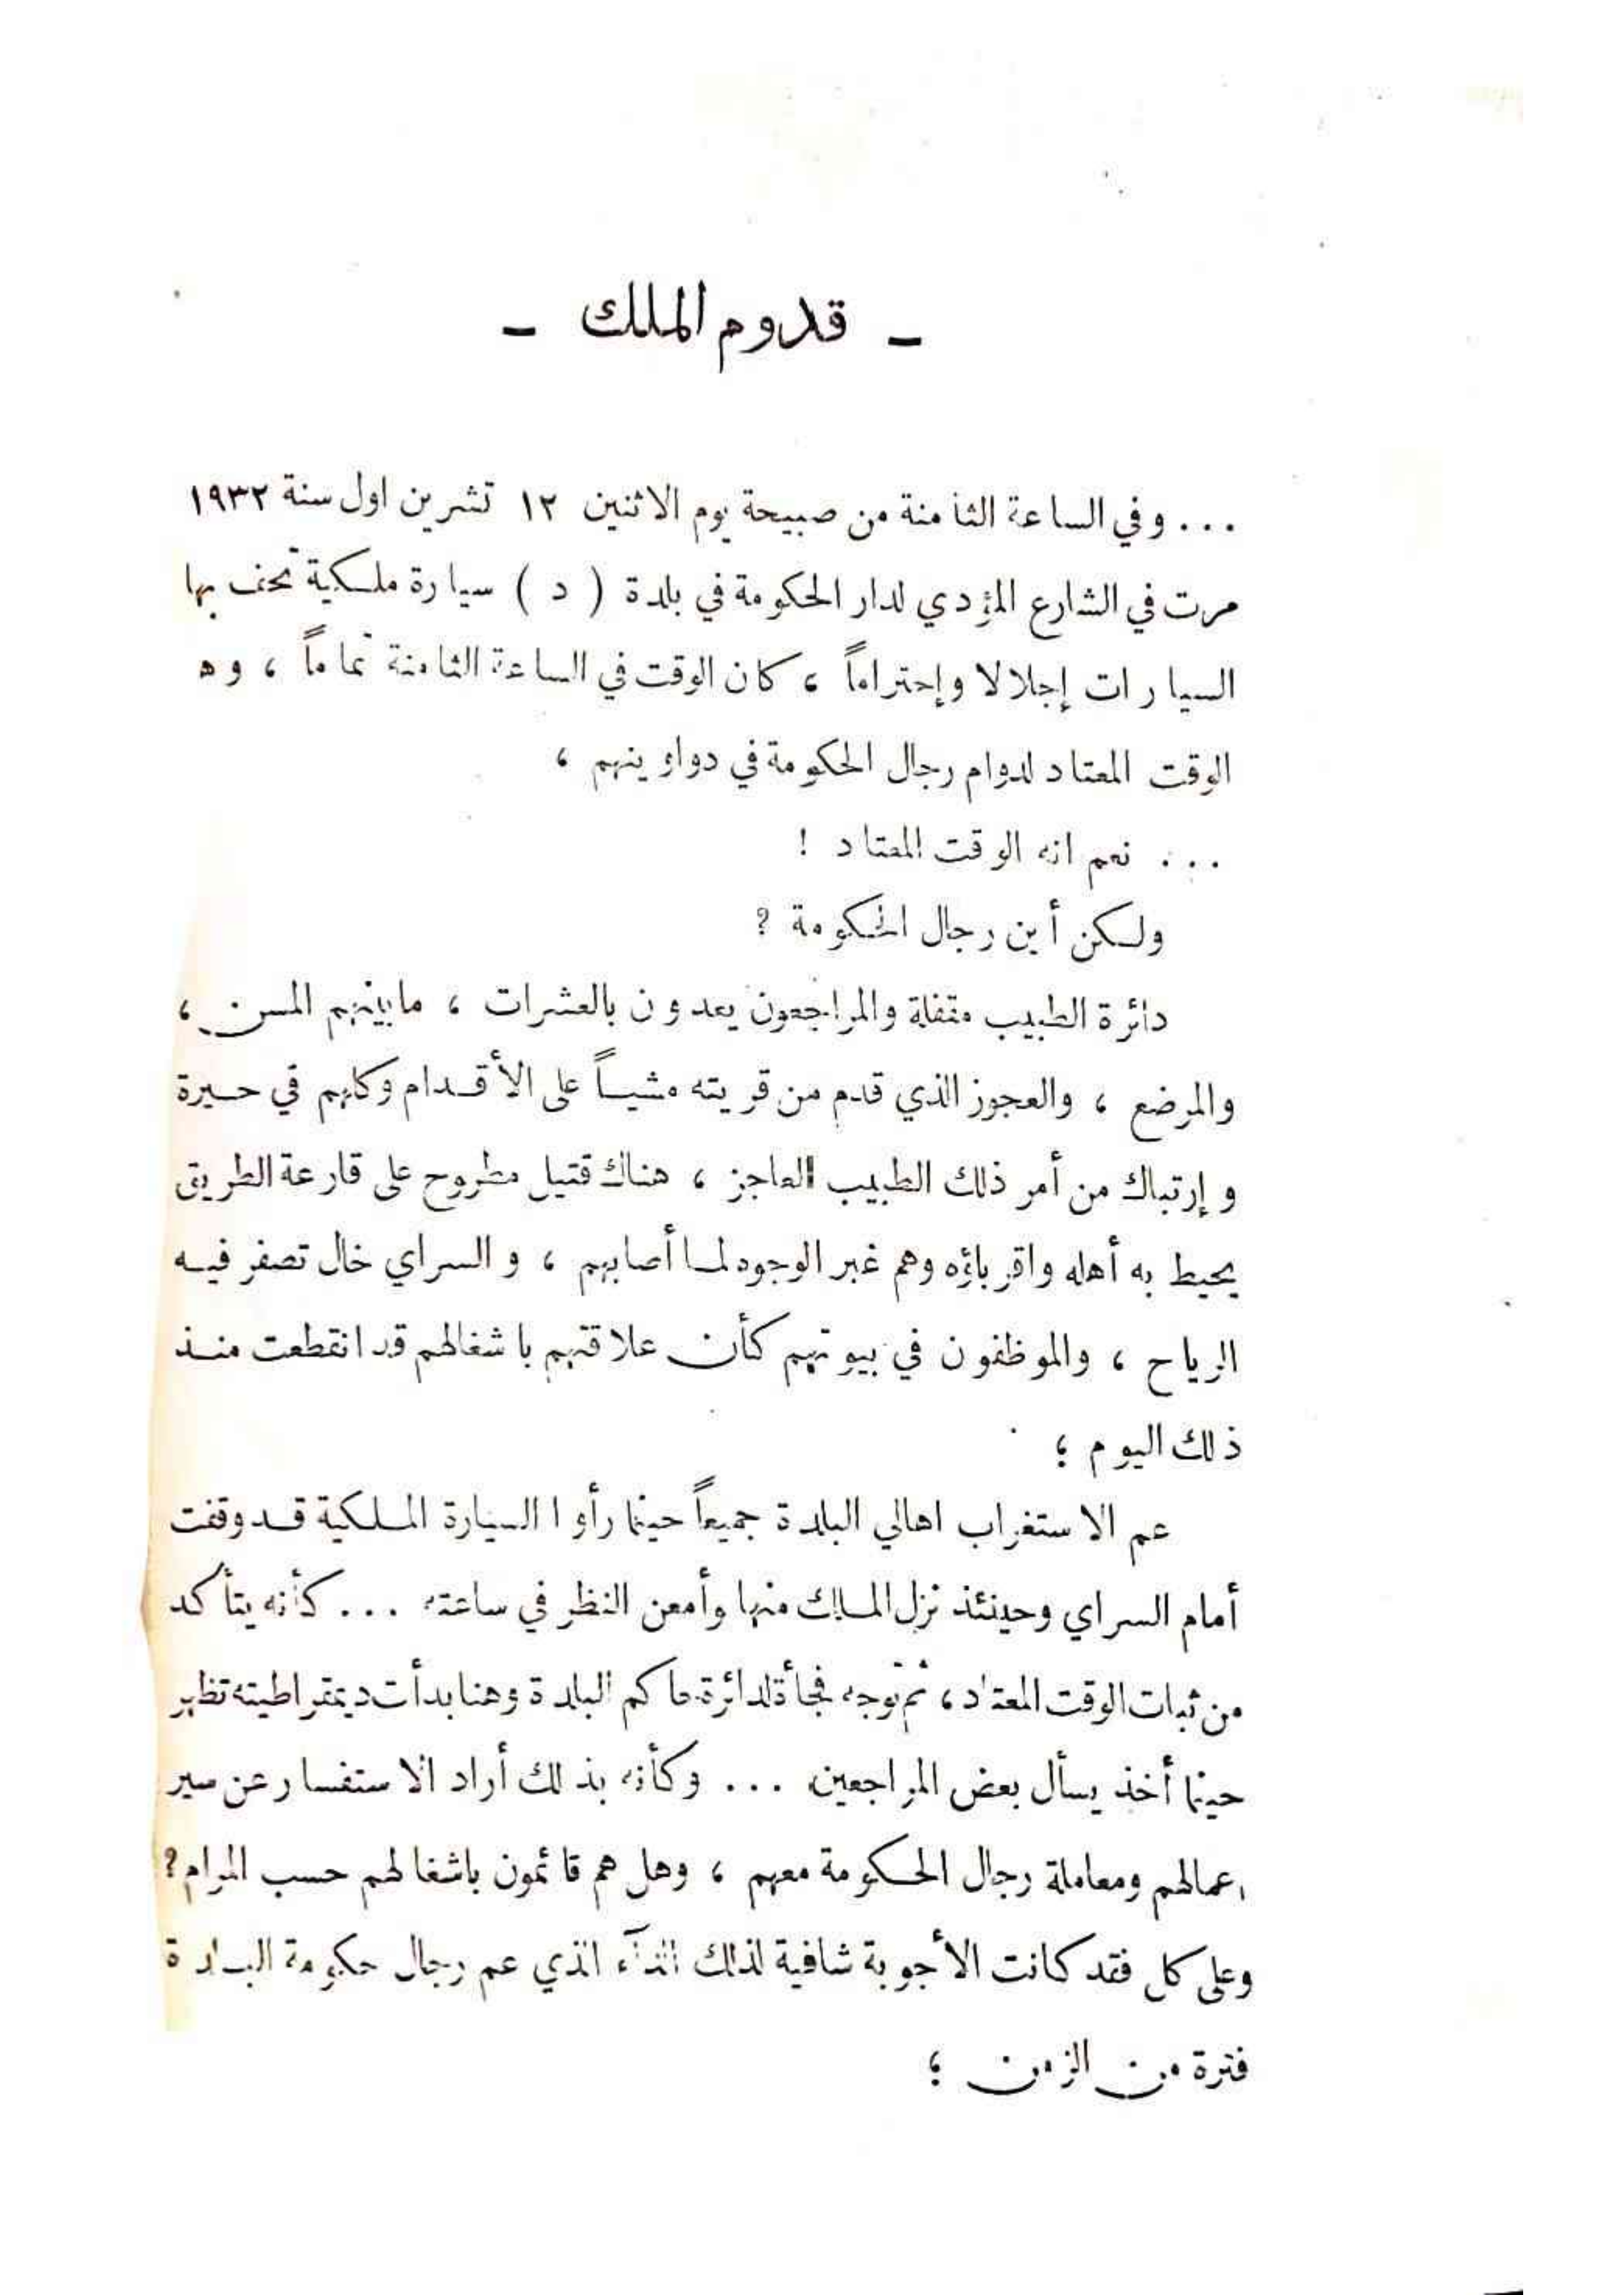 ـ قدوم الملك ـ
... وفي الساعة الثامنة من صبيحة يوم الاثنين ١٢ تشرين اول سنة ١٩٣٢
مرت في الشارع المؤدي لدار الحكومة في بلدة ( د ) سيارة ملكية تحف بها
السيارات إجلالا وإحتراماً ، كان الوقت في الساعة الثامنة تماماً ، وه
الوقت المعتاد لدوام رجال الحكومة في دواوينهم ،
... نعم انه الوقت المعتاد !
ولكن أين رجال الحكومة ؟
دائرة الطبيب مقفلة والمراجعون يعدون بالعشرات ، مابينهم المسن ،
والمرضع ، والعجوز الذي قدم من قريته مشياً على الأقدام وكلهم في حيرة
وإرتباك من أمر ذلك الطبيب العاجز ، هناك قتيل مطروح على قارعة الطريق
يحيط به أهله واقرباؤه وهم غبر الوجوه لما أصابهم ، والسراي خال تصفر فيه
الرياح ، والموظفون في بيوتهم كأن علاقتهم باشغالهم قد انقطعت منذ
ذلك اليوم ؛
عم الاستغراب اهالي البلدة جميعاً حينما رأوا السيارة الملكية قد وقفت
أمام السراي وحينئذ نزل الملك منها وأمعن النظر في ساعته ... كأنه يتأكد
من ثبات الوقت المعتاد ، ثم توجه فجأة لدائرة حاكم البلدة وهنا بدأت ديمقراطيته تظهر
حينما أخذ يسأل بعض المراجعين ... وكأنه بذلك أراد الاستفسار عن سير
اعمالهم ومعاملة رجال الحكومة معهم ، وهل هم قائمون باشغالهم حسب المرام ؟
وعلى كل فقد كانت الأجوبة شافية لذلك الداء الذي عم رجال حكومة البلدة
فترة من الزمن ؛